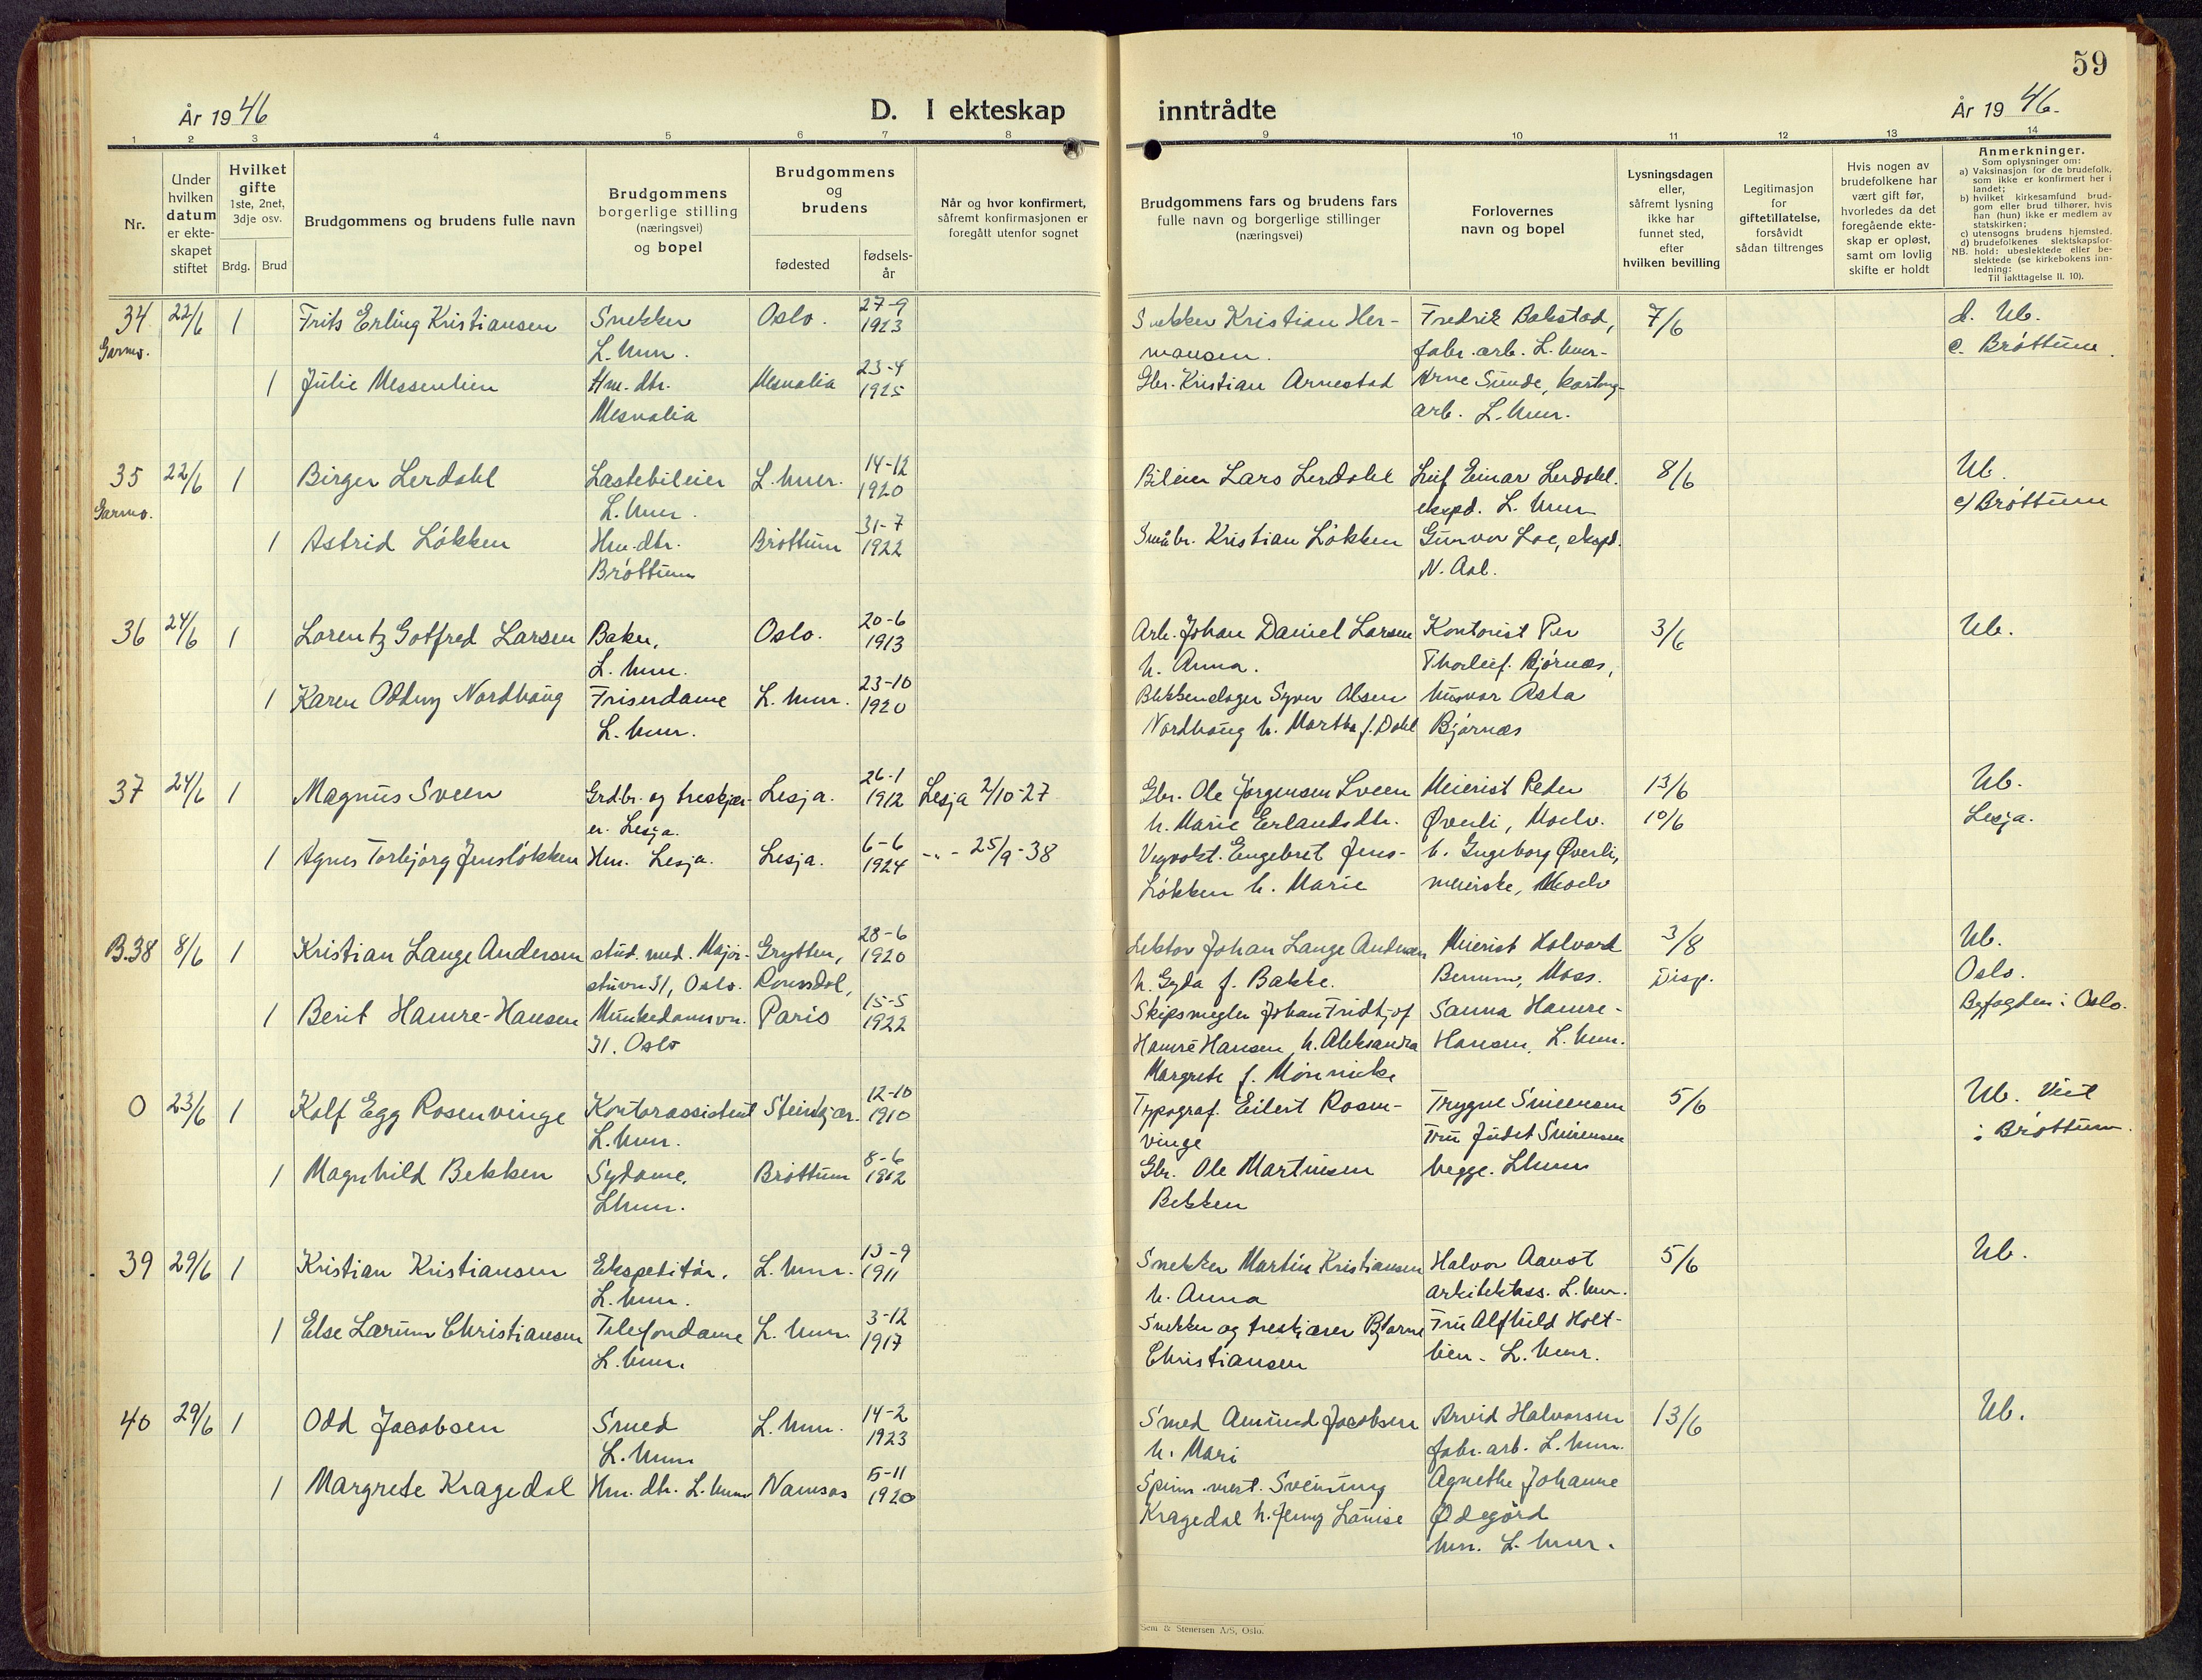 59
År 1946
D. I ekteskap inntrådte
År 1946.
1 2 3 4 5 6 7 8 9 10 11 12 13 14
Nr.
Under hvilken datum er ekte-skapet stiftet
Hvilket gifte 1ste, 2net, 3dje osv.
Brdg. Brud
Brudgommens og brudens fulle navn
Brudgommens borgerlige stilling (næringsvei) og bopel
Brudgommens og brudens
fødested
fødsels-år
Når og hvor konfirmert, såfremt konfirmasjonen er foregått utenfor sognet
Brudgommens fars og brudens fars fulle navn og borgerlige stillinger (næringsvei)
Forlovernes navn og bopel
Lysningsdagen eller, såfremt lysning ikke har funnet sted, efter hvilken bevilling
Legitimasjon for giftetillatelse, forsåvidt sådan tiltrenges
Hvis nogen av brudefolkene har vært gift før, hvorledes da det foregående ekte-skap er opløst, samt om lovlig skifte er holdt
Anmerkninger.
Som oplysninger om:
a) Vaksinasjon for de brudefolk, som ikke er konfirmert her i landet;
b) hvilket kirkesamfund brud-gom eller brud tilhører, hvis han (hun) ikke er medlem av statskirken;
c) utensogns brudens hjemsted.
d) brudefolkenes slektskapsfor-hold: ubeslektede eller be-slektede (se kirkebokens inn-ledning:
NB. Til iakttagelse II. 10).
34 22/6 1 Frits Erling Kristiansen Snekker Oslo. 27-9 1923 Snekker Kristian Her- Fredrik Bakstad, 7/6 d. Ub.
Garmo. L.hmr. mansen. fabr.arb. L.hmr- c. Brøttum.
1 Julie Messenlien Hm. dtr. Mesnalia 23-4 1925 Gbr. Kristian Arnestad Arne Sunde, kartong-
Mesnalia arb. L.hmr.
35 22/6 1 Birger Lerdahl Lastebileier L.hmr. 14-12 1920 Bileier Lars Lerdahl Leif Einar Lerdahl. 8/6 Ub.
Garmo. L.hmr. eksp. L.hmr c/Brøttum
1 Astrid Løkken Hm.dtr. Brøttum 31-7 1922 Småbr. Kristian Løkken Gunvor Loe, eksp.
Brøttum N. Aal.
36 24/6 1 Lorentz Gotfred Larsen Baker, Oslo. 20-6 1913 Arb. Johan Daniel Larsen Kontorist Per 3/6 Ub.
L.hmr. h. Anna. Thorleif Bjørnæs,
1 Karen Oddny Nordhaug Friserdame L.hmr. 23-10 1920 Blikkenslager Syver Olsen husmor Asta
L.hmr. Nordhaug h. Martha f. Dahl Bjørnæs
37 24/6 1 Magnus Sveen Grdbr. og treskjær- Lesja. 26-1 1912 Lesja 2/10-27 Gbr. Ole Jørgensen Sveen Meierist Peder 13/6 Ub.
er. Lesja. h. Marie Erlandsdtr. Øverli, Moelv. 10/6 Lesja.
1 Agnes Torbjørg Jensløkken Hm. Lesja. Lesja. 6-6 1924 -"- 25/9-38 Vegvokt. Engebret Jens- h. Ingeborg Øverli,
Løkken h. Marie meierske, Moelv
B.38 8/6 1 Kristian Lange Andersen stud. med. Major- Grytten, 28-6 1920 Lektor Johan Lange Andersen Meierist Halvard 3/8 Ub.
stuvn 31, Oslo. Romsdal, h. Gyda f. Bakke. Moss. Disp. Oslo.
1 Berit Hamre-Hansen Munkedamsvn. Paris 15-5 1922 Skipsmegler Johan Fridtjof Sanna Hamre- Byfogden i Oslo.
31. Oslo Hamre Hansen, h. Aleksandra Hansen, L.hmr.
Margrete f.
0 23/6 1 Rolf Egg Rosenvinge Kontorassistent Steinkjær. 12-10 1910 Typograf. Eilert Rosen- Trygve Simensen 5/6 Ub. Viet
L.hmr. vinge Fru Judit Simensen i Brøttum.
1 Magnhild Bekken Sydame, Brøttum 8-6 1912 Gbr. Ole Martinsen begge. Lhmr
Lhmr. Bekken
39 29/6 1 Kristian Kristiansen Ekspeditør. L.hmr. 13-9 1911 Snekker Martin Kristiansen Halvor Aanst 5/6 Ub.
L.hmr. h. Anna arkitektass. L.hmr.
1 Else Larum Christiansen Telefondame L.hmr. 3-12 1917 Snekker og treskjærer Bjarne Fru Alfhild Holt-
L.hmr. Christiansen lien. L.hmr.
40 29/6 1 Odd Jacobsen Smed L.hmr. 14-2 1923 Smed Amund Jacobsen Arvid Halvorsen 13/6 Ub.
L.hmr h. Mari fabr.arb. L.hmr.
1 Margrete Kragedal Hm. dtr. L.hmr Namsos 5-11 1920 Spinn.mest. Sveinung Agnethe Johanne
Kragedal h. Jenny Louise Ødegård
hm. L.hmr.
Sem & Stenersen A/S, Oslo.